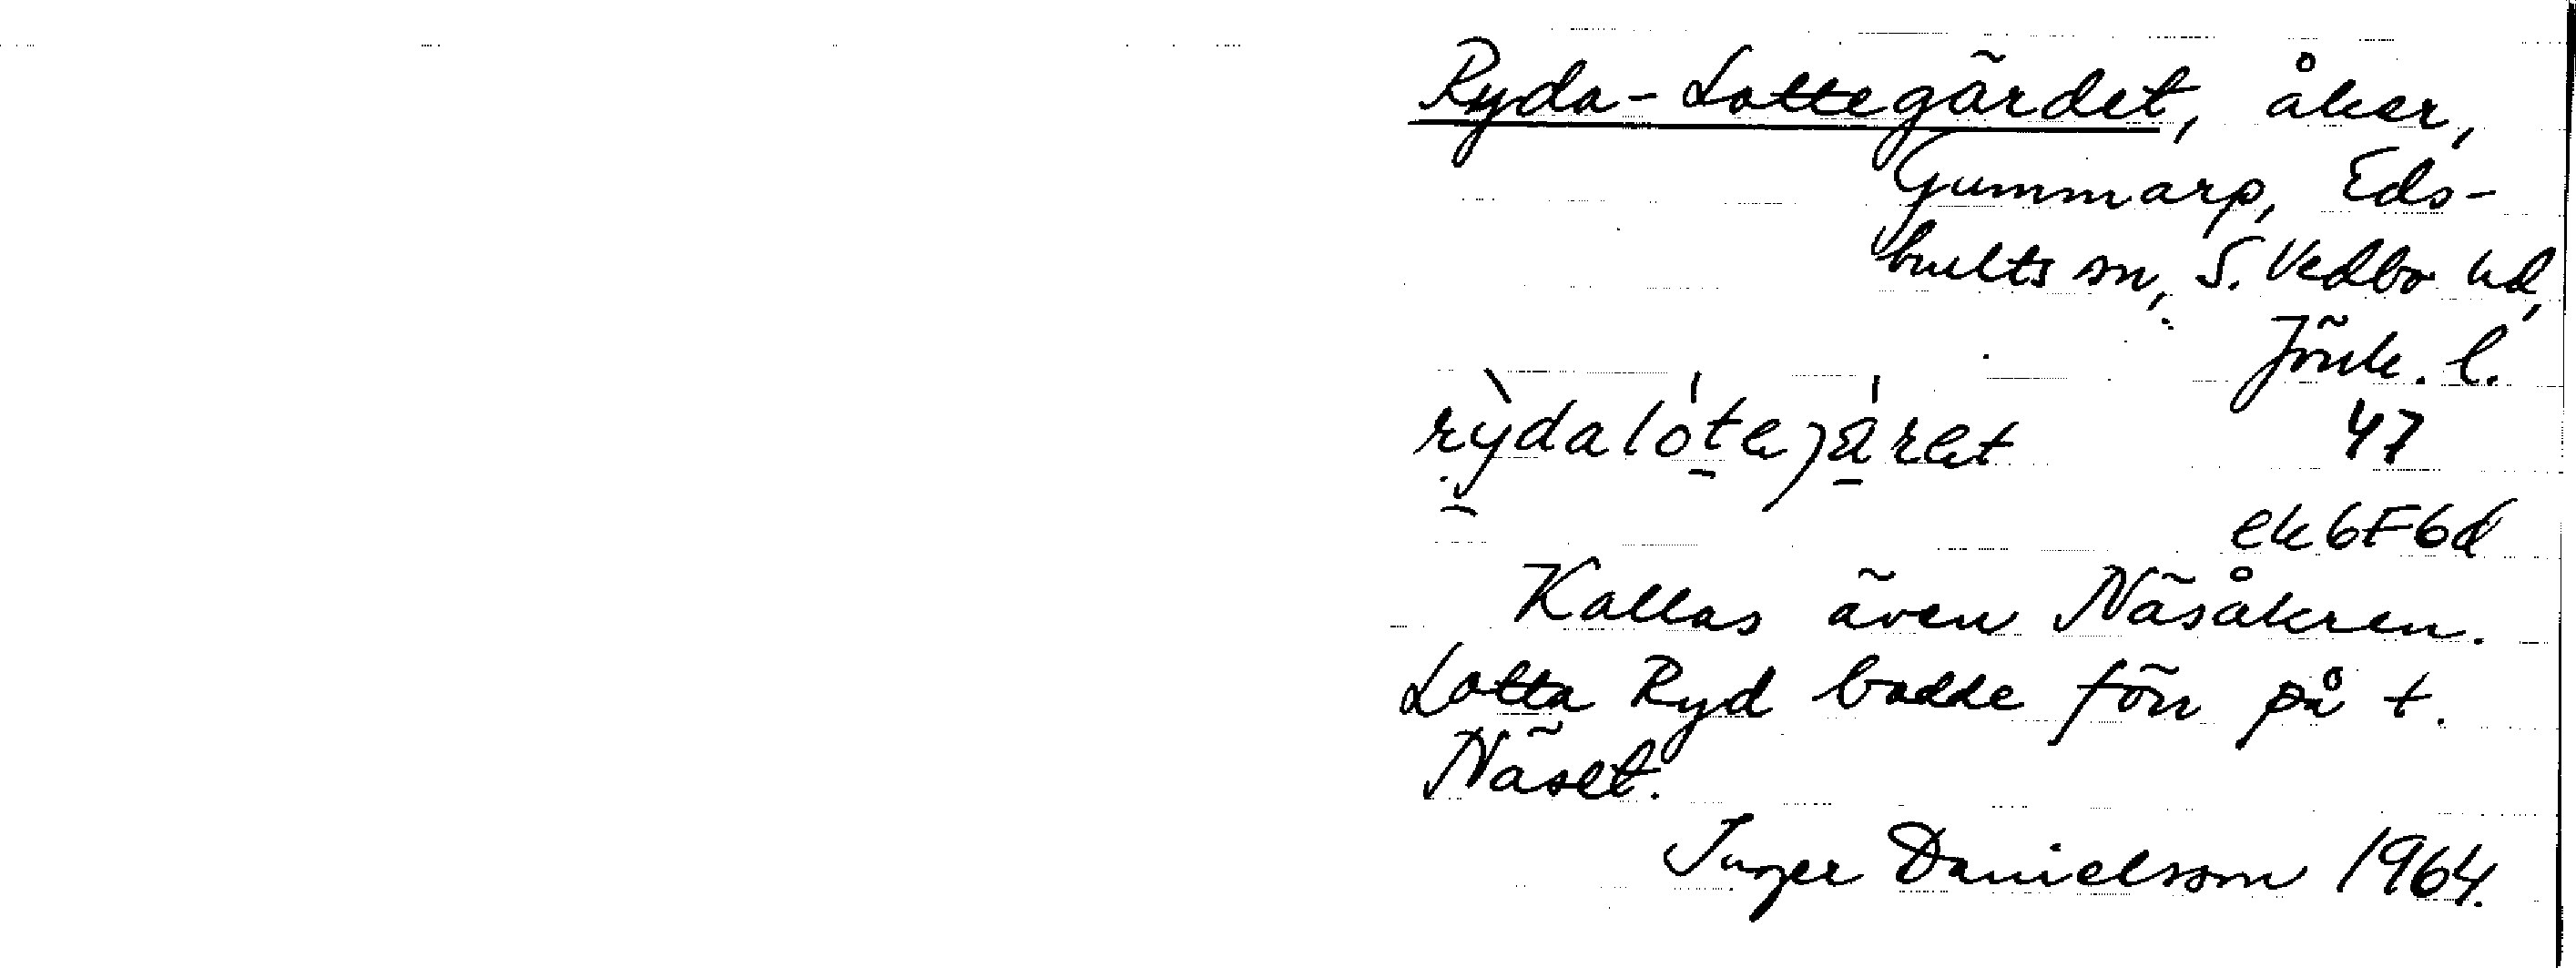 Ryda-Lottegärdet, åker,
Gummarp, Eds-
hults sn, S. Vedbo hd,
Jönk. l.
47
ek 6F6d
Kallas även Näsåkren.
Lotta Ryd bodde förr på t.
Näset.
Inger Danielsson 1964.